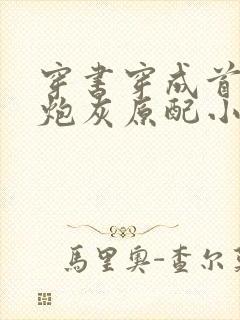 穿书穿成首
炮灰原配小
馬里奥-查尔莱